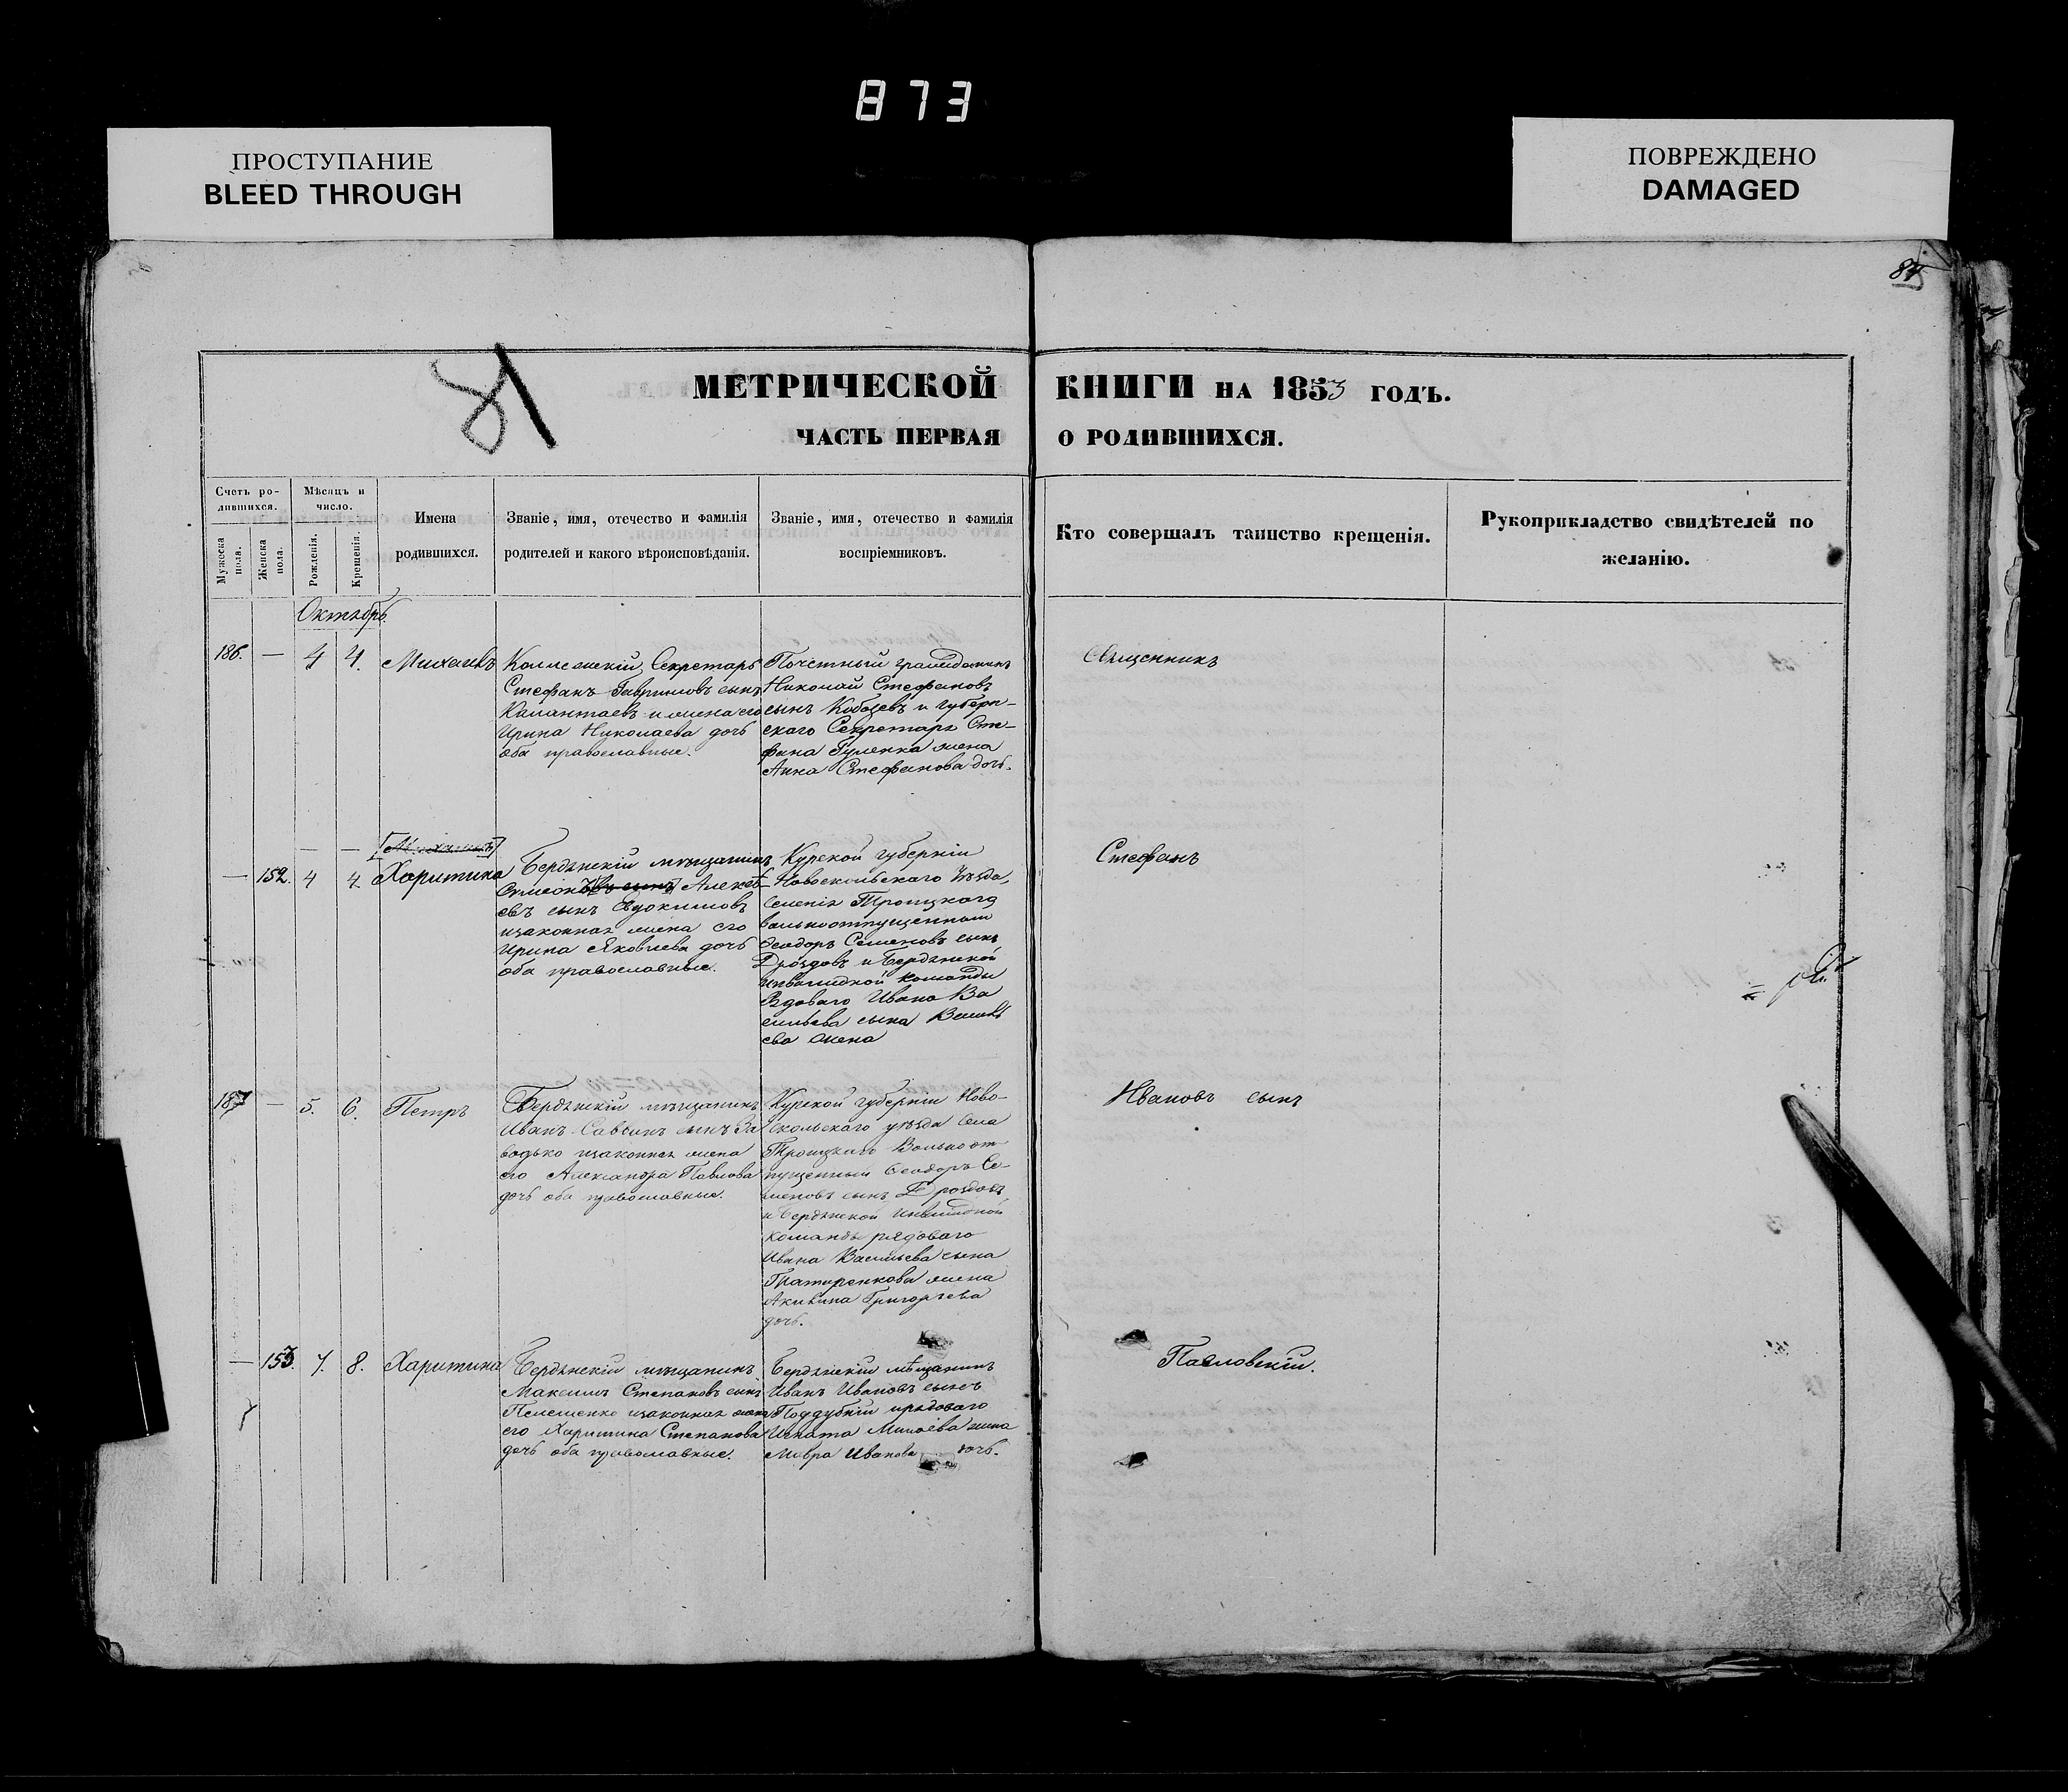 873
ПРОСТУПАНИЕ
BLEED THROUGH
ПОВРЕЖДЕНО
DAMAGED
81
МЕТРИЧЕСКОЙ КНИГИ НА 1853 ГОДЪ.
ЧАСТЬ ПЕРВАЯ О РОДИВШИХСЯ.
Счетъ ро-
дившихся.
Мужеска пола.
Женска пола.
Мѣсяцъ и
число.
Рожденія.
Крещенія.
Имена
родившихся.
Званіе, имя, отечество и фамилія
родителей и какого вѣроисповѣданія.
Званіе, имя, отечество и фамилія
воспріемниковъ.
Кто совершалъ таинство крещенія.
Рукоприкладство свидѣтелей по
желанію.
Октябрь
186. — 4 4. Михаилъ
Коллежскій Секретарь
Стефанъ Гавриловъ сынъ
и жена его
Ирина Николаева дочь
оба православные.
Почетный гражданинъ
Николай Стефановъ
сынъ Кобозевъ и Губерн-
скаго Секретаря Сте-
фана жена
Анна Стефанова дочь.
Священникъ
— 152. 4 4. Харитина
Бердянскій мѣщанинъ
Симеонъ Алексѣ-
евъ сынъ Евдокимовъ
изаконная жена его
Ирина Яковлева дочь
оба православные.
Курской губерніи
Новоскольскаго Уѣзда,
Селенія Троицкаго
вольноотпущенный
Феодоръ Семеновъ сынъ
Дроздовъ и Бердянской
инвалидной команды
Рядоваго Ивана Ва
сильева сына
жена
Стефанъ
187 — 5. 6. Петръ
Бердянскій мѣщанинъ
Иванъ Саввинъ сынъ За
водько изаконная жена
его Александра Павлова
дочь оба православные.
Курской губерніи Ново-
скольскаго уѣзда села
Троицкаго Вольноот
пущенный Феодоръ Се-
меновъ сынъ Дроздовъ
и Бердянской Инвалидной
команды рядоваго
Ивана Васильева сына
жена
Акилина Григорьева
дочь.
Ивановъ сынъ
— 153. 7. 8. Харитина
Бердянскій мѣщанинъ
Максимъ Степановъ сынъ
изаконная жена
его Харитина Степанова
дочь оба православные.
Бердянскій мѣщанинъ
Иванъ Ивановъ сынъ
Поддубній ирядоваго
Игната жена
Мавра Иванова дочь.
Павловскій.